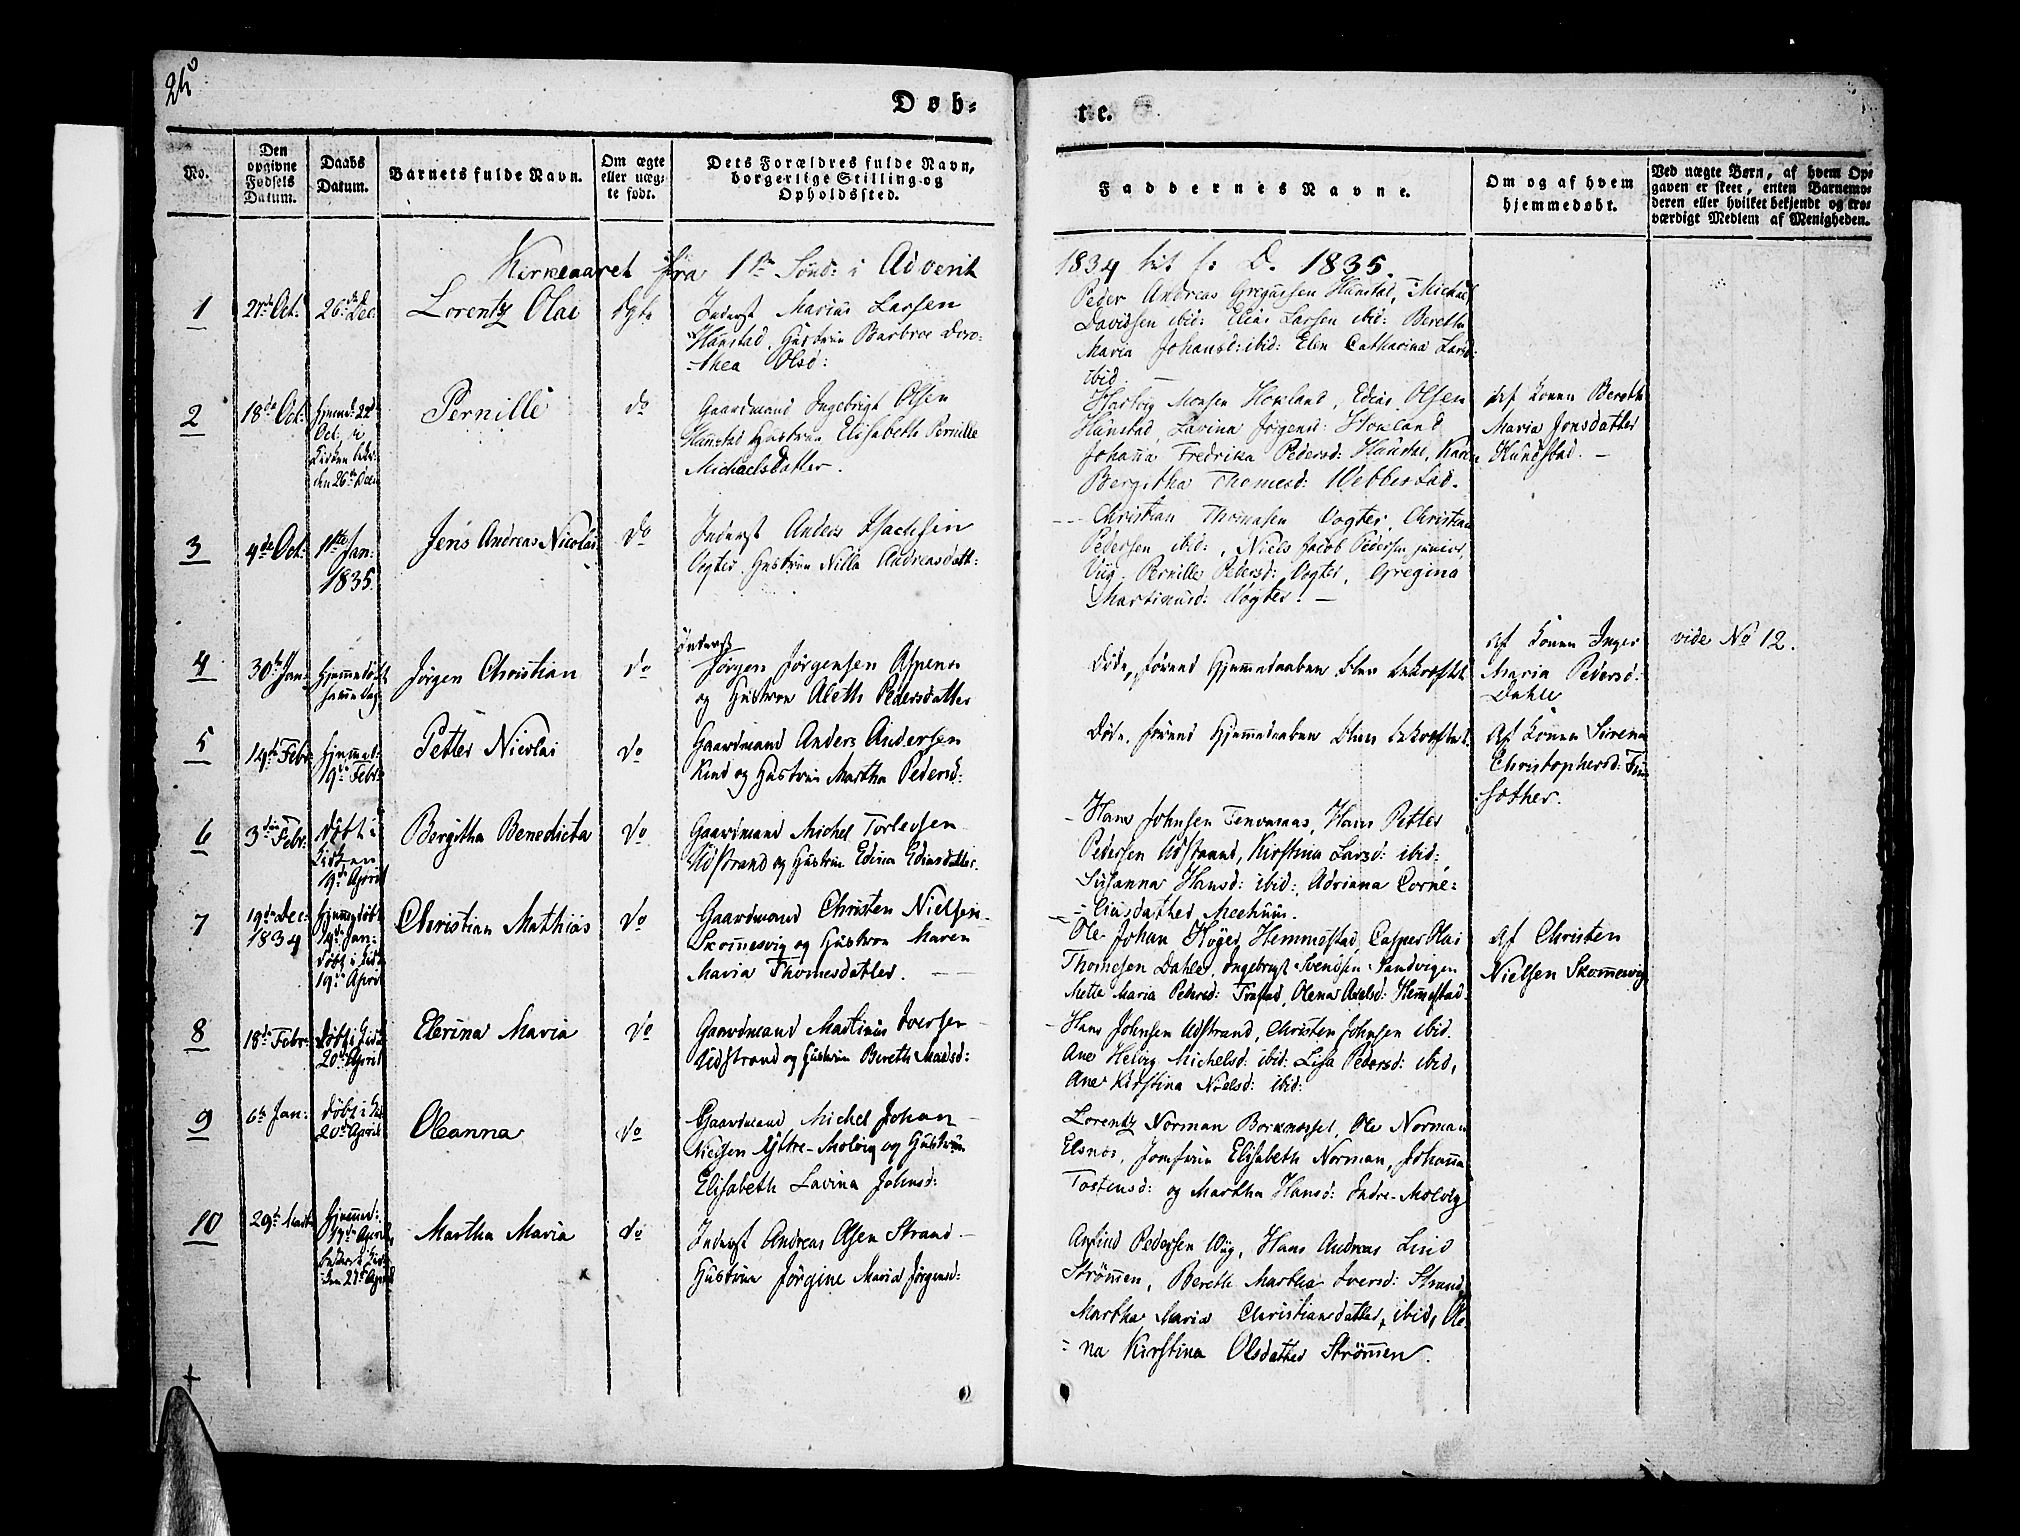 Døb-
te.
No.
Den opgivne Fødsels Datum.
Daabs Datum.
Barnets fulde Navn.
Om ægte eller uægte født.
Dets Forældres fulde Navn, borgerlige Stilling og Opholdssted.
Faddernes Navne.
Om og af hvem hjemmedøbt.
Ved uægte Børn, af hvem Opgaven er skeet, enten Barnemoderen eller hvilket bekjendt og troværdigt Medlem af Menigheden.
Kirkeaaret fra 1ste Sønd: i Advent
1834 til s: D. 1835.
1
27de Oct:
26de Dec
Lorentz Olai
Ægte
Inderst Marius Larsen
Hunstad, Hustrue Barbroe Doro:
thea Olsd:
Peder Andreas Gregusen Hunstad, Michael
Davidsen ibid: Elias Larsen ibid: Berethe
Maria Johansd: ibid: Elen Catharina Larsd:
ibid
2
18de Oct:
Hjemmed: 22d
Oct: i
Kirken
den 26de Decb
Pernille
do
Gaardmand Ingebrigt Olsen
Hunstad Hustrue Elisabeth Pernille
Michaelsdatter.
Hartvig Monsen Howland, Edias Olsen
Hunstad, Lavina Jørgensd: Howland
Johanna Fredrika Pedersd: Hunstad, Karen
Bergitha Thomesd: Webbestad.
Af Konen Bereth
Maria Jonsdatter
Hundstad. —
3
4de Oct:
11te Jan:
1835.
Jens Andreas Nicolai
do
Inderst Anders Isachsen
Vogter, Hustrue Nilla Andreasdatt:
Christian Thomasen Vogter, Christian
Pedersen ibid:, Niels Jacob Pedersen junior
Viig, Pernille Pedersd: Vogter, Gregina
Martinusd: Vogter. —
4
30te Jan:
Hjemmedøbt
samme Dag
Jørgen Christian
do
Inderst
Jørgen Jørgensen Aspenes
og Hustrue Aleth Pedersdatter
Døde, førend Hjemmedaaben blev bekræftet
Af Konen Inger
Maria Pedersd:
Dahle
vide No 12.
5
19de Febr:
Hjemmed:
19de Febr
Petter Nicolai
do
Gaardmand Anders Andersen
Kind og Hustrue Martha Pedersd:
Døde, førend Hjemmedaaben blev bekræftet.
Af Konen Sirena
Christophersd:
6
3die Febr:
Døbt i
Kirken
19de April
Bergitha Benedicta
do
Gaardmand Michel Torlevsen
Udstrand og Hustrue Edina Ediasdatter.
Hans Johnsen Fenesnaas, Hans Petter
Pedersen Udstrand, Kirstina Larsd: ibid:,
Susanna Hansd: ibid:, Adriana Corne:
liusdatter Meehuun.
7
19de Dec:
1834
Hjemmedøbt
19de Jan:
Døbt i Kirk
19de April
Christian Mathias
do
Gaardmand Christen Nielsen
Skomesvig og Hustrue Maren
Maria Thomesdatter.
Ole Johan Høyer Hemmestad, Casper Olai
Thomesen Dahle, Ingebrigt Svendsen Sandvigen
Mette Maria Pedersd: Trastad, Olena Axelsd: Hemestad.
Af Christen
Nielsen Skomesvig
8
18de Febr:
Døbt i Kirk
20de April
Elerina Maria
do
Gaardmand Martinus Iversen
Udstrand og Hustrue Bereth Madsd:
Hans Johnsen Udstrand, Christen Johnsen ibid.
Ane Helvig Michelsd: ibid: Lisa Pedersd: ibid,
Ane Kirstina Nielsd: ibid:
9
6te Jan:
Døbt i Ki
20de April
Oleanna
do
Gaardmand Michel Johan
Nielsen Yttre-Molvig og Hustrue
Elisabeth Lavina Johnsd:
Lorentz Norman Borkenes, Ole Norman
Elsnes, Jomfrue Elisabeth Norman, Johanna
Tostensd: og Martha Hansd: Indre-Molvig
10
29de Marts
Hjemmed:
17de April
den 21de April
Martha Maria
do
Inderst Andreas Olsen Strand
Hustrue Jørgine Maria Jørgensd:
Arfind Pedersen Viig, Hans Andreas Lind
Strømen, Bereth Martha Iversd: Strand,
Martha Maria Christiansdatter, ibid, Ole
na Kirstina Olsdatter Strømen.